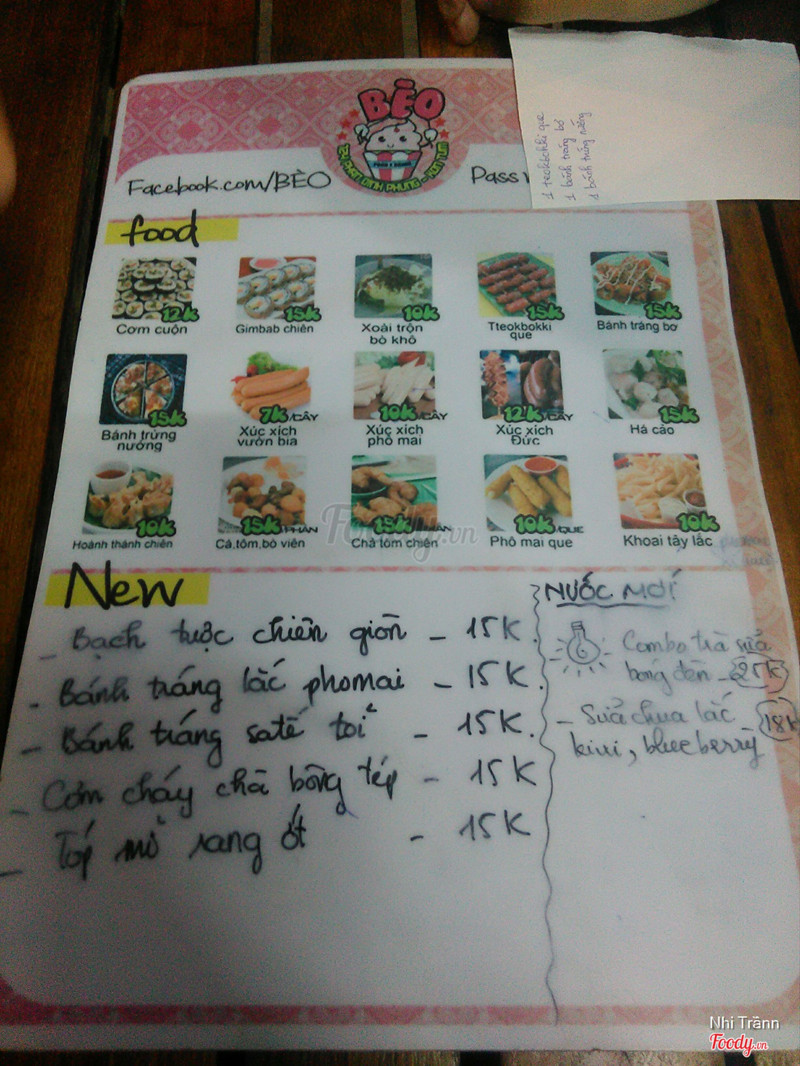 BÈO
24 PHAN ĐÌNH PHÙNG - KON TUM
Facebook.com/BÈO
Pass
1 teokbochki que
1 bánh tráng bơ
1 bánh trứng nướng
food
12k 15k 10k 15k 15k
Cơm cuộn
Gimbab chiên
Xoài trộn
bò khô
Tteokbokki
que
Bánh tráng bơ
15k 7k/CÂY 10k/CÂY 12k/CÂY 15k
Bánh trứng
nướng
Xúc xích
vườn bia
Xúc xích
phô mai
Xúc xích
Đức
Há cảo
10k 15k/PHẦN 15k 10k/QUE 10k
Hoành thánh chiên
Cá,tôm,bò viên
Chả tôm chiên
Phô mai que
Khoai tây lắc
Foody.vn
New
- Bạch tuộc chiên giòn - 15K.
- Bánh tráng lắc phomai - 15K.
- Bánh tráng satế tỏi - 15K.
- Cơm cháy chà bông tép - 15K
- Tóp mỡ rang ớt - 15K
NƯỚC MỚI
Combo trà sữa
bóng đèn - 25K
- Sữa chua lắc - 18K
kiwi, blueberry
Nhi Trầnn
Foody.vn